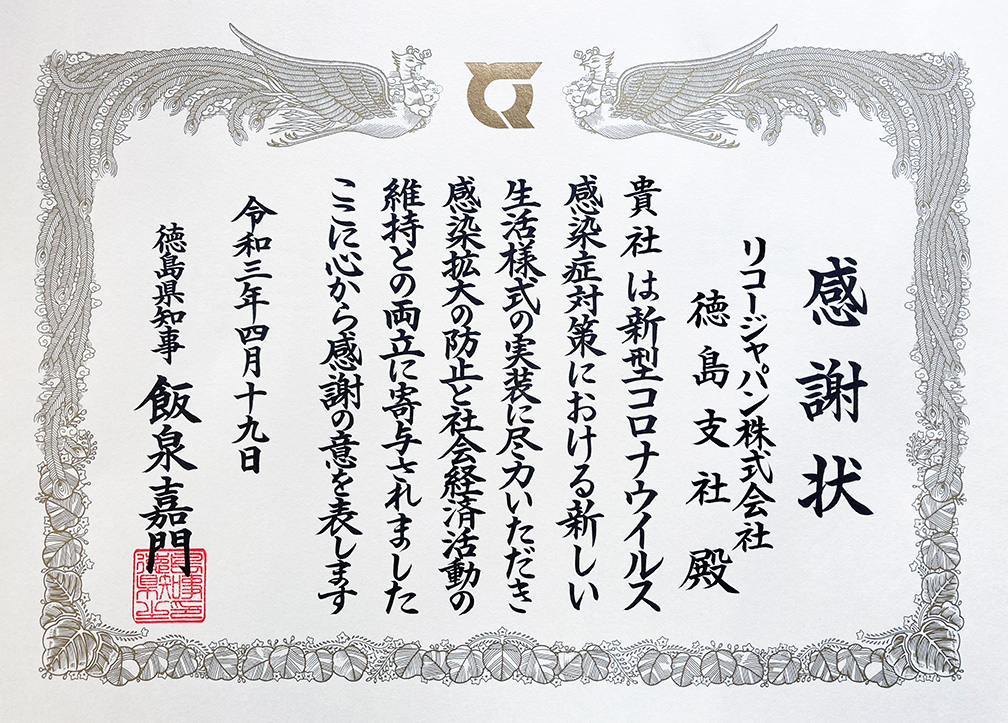 感謝状
リコージャパン株式会社
徳島支社 殿
貴社は新型コロナウイルス
感染症対策における新しい
生活様式の実装に尽力いただき
感染拡大の防止と社会経済活動の
維持との両立に寄与されました
ここに心から感謝の意を表します
令和三年四月十九日
徳島県知事 飯泉嘉門